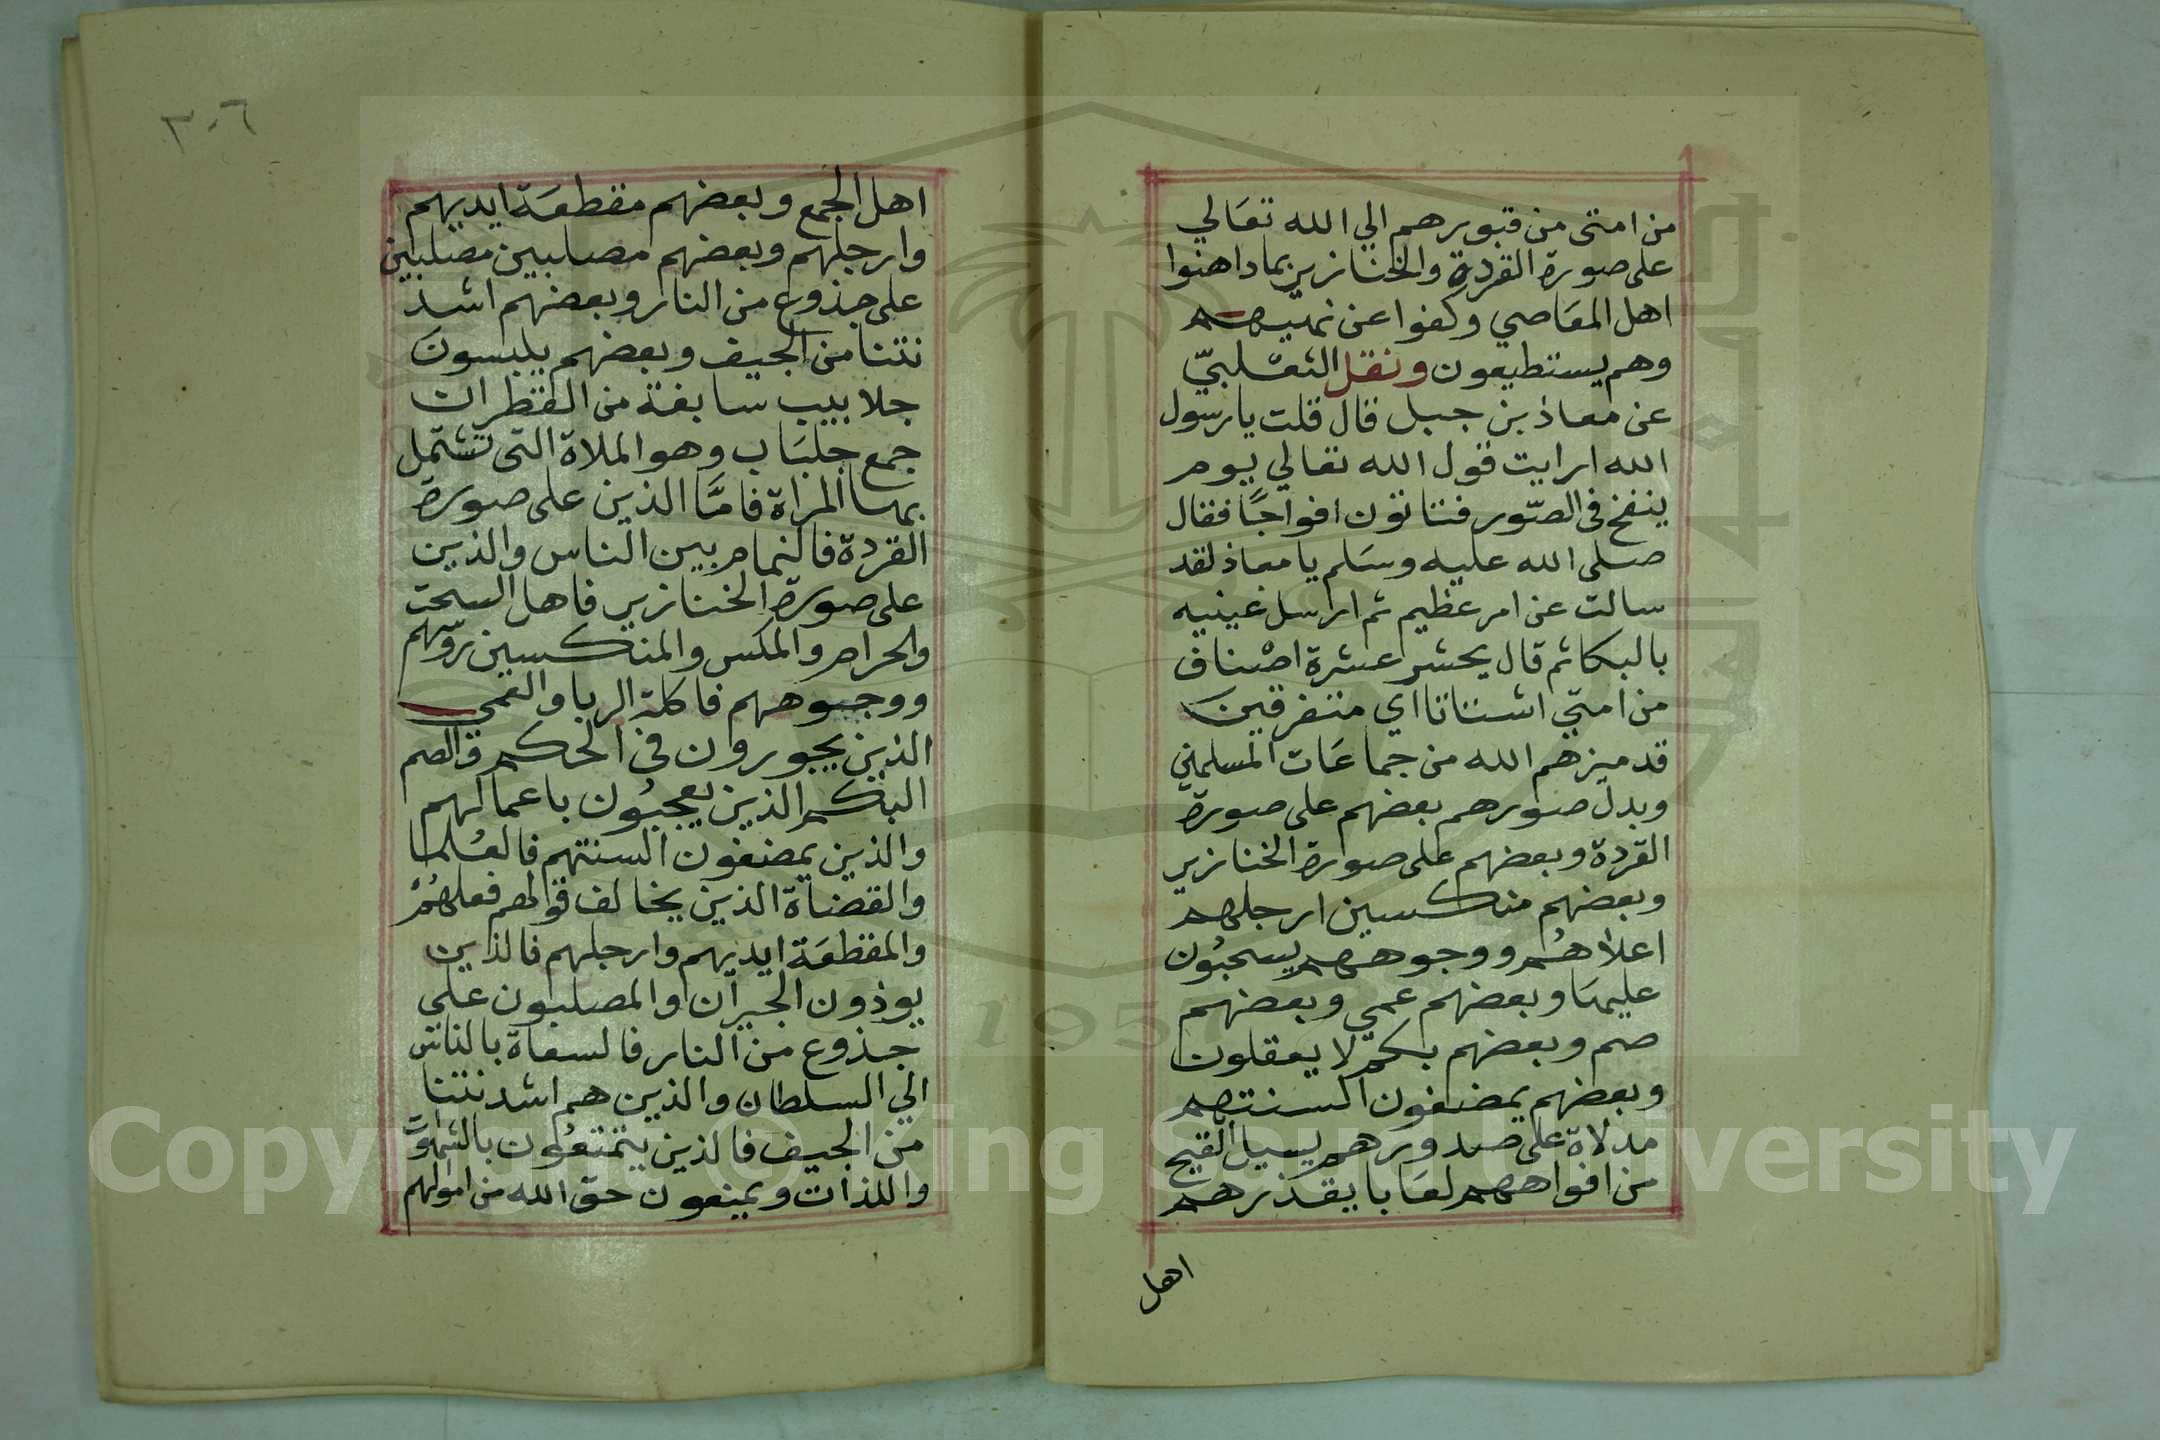 من امتى من قبورهم الي الله تعالي
على صورة القردة والخنازير بما داهنوا
اهل المعاصي وكفوا عن نهيهم
وهم يستطيعون ونقل الثعلبيّ
عن معاذ بن جبل قال قلت يا رسول
الله ارايت قول الله تعالي يوم
ينفخ فى الصّور فتاتون افواجًا فقال
صلى الله عليه وسَلم يا معاذ لقد
سالت عن امر عظيم ثم ارسل عينيه
بالبكا ثم قال يحشر عشرة اصْناف
من امتي اشتاتا اي متفرقين
قد ميزهم الله من جماعَات المسلمين
وبدل صورهم بعضهم على صورة
القردة وبعضهم على صورة الخنازير
وبعضهم منكسين ارجلهم
اعلاهُم ووجوههم يسحبُون
عليهَا وبعضهم عمي وبعضهم
صم وبعضهم بكم لا يعقلون
وبعضهم يمضغون السنتهم
مدلاة على صدورهم يسيل القيح
من افواههم لعَابا يقذرهم
اهل
٣٠٦
اهل الجمع وبعضهم مقطعَة ايديهم
وارجلهم وبعضهم مصلبين مصلبين
على جذوع من النار وبعضهم اشد
نتنا من الجيف وبعضهم يلبسون
جلابيب سابغة من القطران
جمع جلبَاب وهو الملاة التى تشتمل
بها المراة فامَّا الذين على صورة
القردة فالنمام بين الناس والذين
على صورة الخنازير فاهل السحت
والحرام والمكس والمنكسين روسهم
ووجوههم فاكلة الربا والعمي
الذين يجورون فى الحكم والصم
البكم الذين يعجبُون باعمالهم
والذين يمضغون السنتهم فالعُلما
والقضاة الذين يخالف قولهم فعلهُمْ
والمقطعَة ايديهم وارجلهم فالذين
يوذون الجيران والمصلبون علي
جذوع من النار فالسعاة بالناس
الي السلطان والذين هم اشد نتنا
من الجيف فالذين يتمتعُون بالشهوَات
واللذات ويمنعون حق الله من اموالهم
1957
Copyright © King Saud University